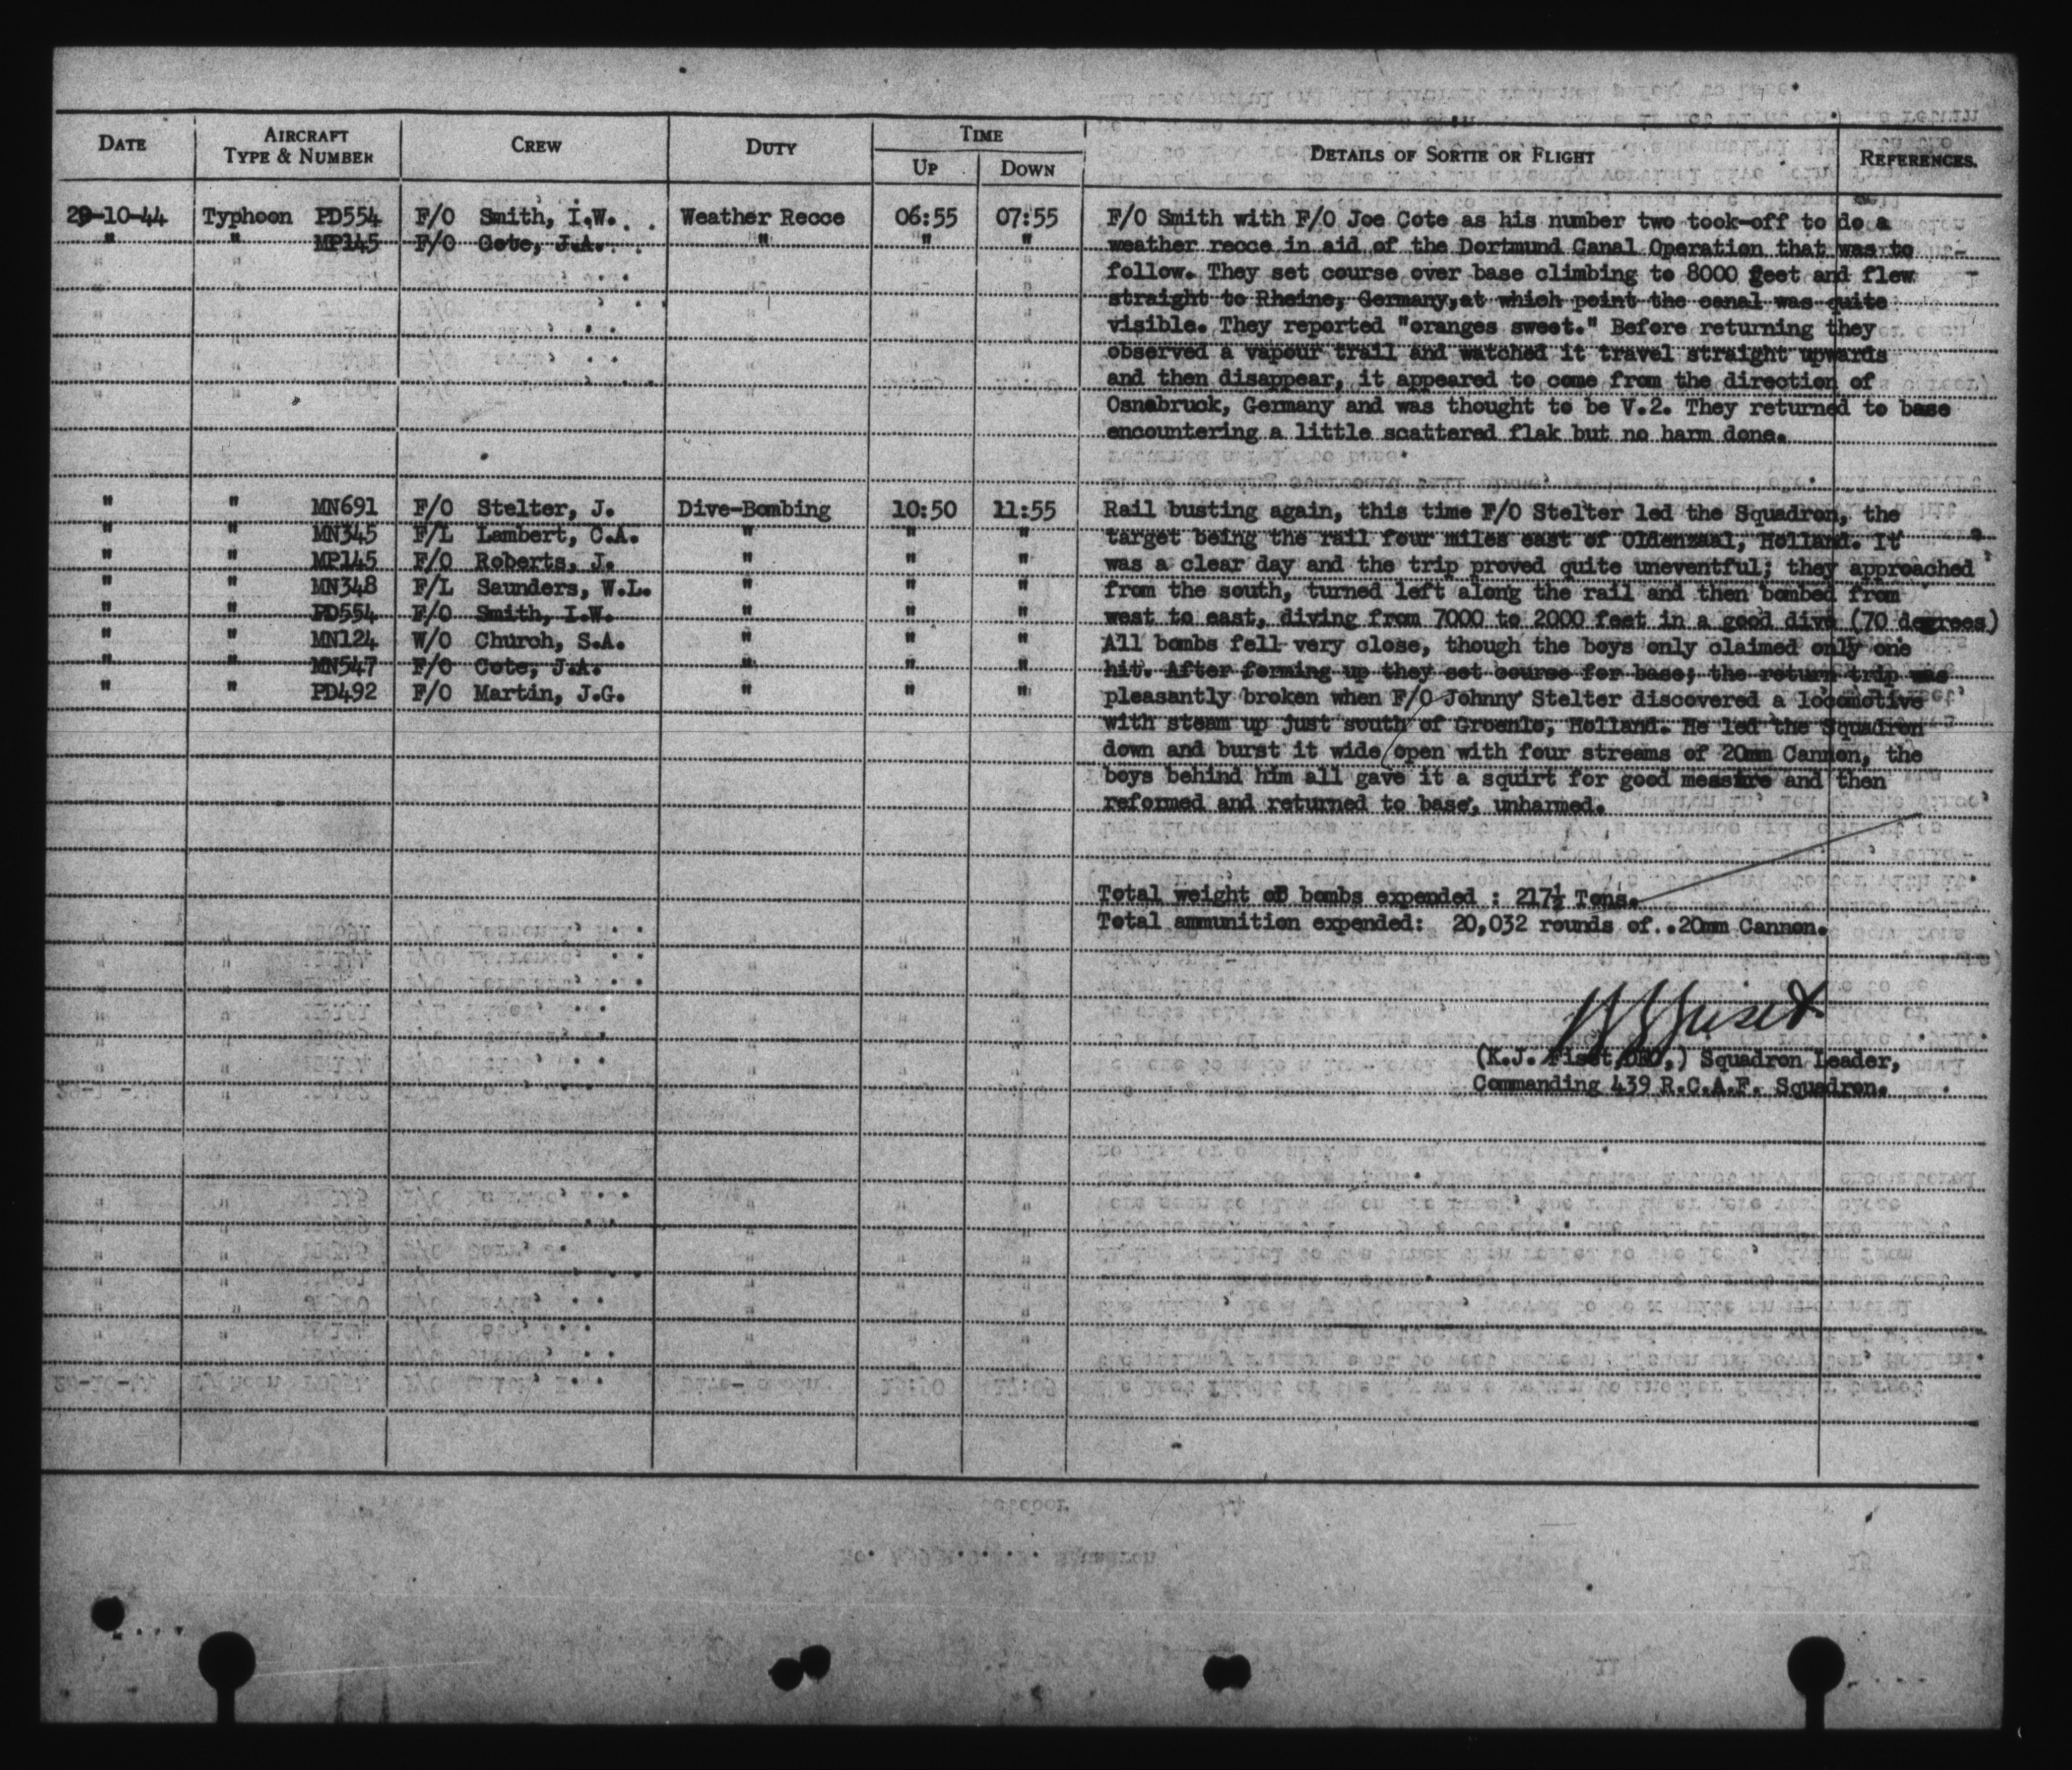 DATE AIRCRAFT TYPE & NUMBER CREW DUTY TIME UP DOWN DETAILS OF SORTIE OR FLIGHT REFERENCES.
29-10-44 Typhoon PD554 F/O Smith, I.W. Weather Recce 06:55 07:55 F/O Smith with F/O Joe Cote as his number two took-off to do a
" " MP145 F/O Cote, J.A. " " " weather recce in aid of the Dortmund Canal Operation that was to
follow. They set course over base climbing to 8000 feet and flew
straight to Rheine, Germany, at which point the canal was quite
visible. They reported "oranges sweet." Before returning they
observed a vapour trail and watched it travel straight upwards
and then disappear, it appeared to come from the direction of
Osnabruck, Germany and was thought to be V.2. They returned to base
encountering a little scattered flak but no harm done.
" " MN691 F/O Stelter, J. Dive-Bombing 10:50 11:55 Rail busting again, this time F/O Stelter led the Squadron, the
" " MN345 F/L Lambert, C.A. " " " target being the rail four miles east of Oldenzaal, Holland. It
" " MP145 F/O Roberts, J. " " " was a clear day and the trip proved quite uneventful; they approached
" " MN348 F/L Saunders, W.L. " " " from the south, turned left along the rail and then bombed from
" " PD554 F/O Smith, I.W. " " " west to east, diving from 7000 to 2000 feet in a good dive (70 degrees)
" " MN124 W/O Church, S.A. " " " All bombs fell very close, though the boys only claimed only one
" " MN547 F/O Cote, J.A. " " " hit. After forming up they set course for base; the return trip was
" " PD492 F/O Martin, J.G. " " " pleasantly broken when F/O Johnny Stelter discovered a locomotive
with steam up just south of Groenlo, Holland. He led the Squadron
down and burst it wide open with four streams of 20mm Cannon, the
boys behind him all gave it a squirt for good measure and then
reformed and returned to base, unharmed.
Total weight of bombs expended : 217½ Tons.
Total ammunition expended: 20,032 rounds of..20mm Cannon.
(K.J. Fiset, DFC,) Squadron Leader,
Commanding 439 R.C.A.F. Squadron.